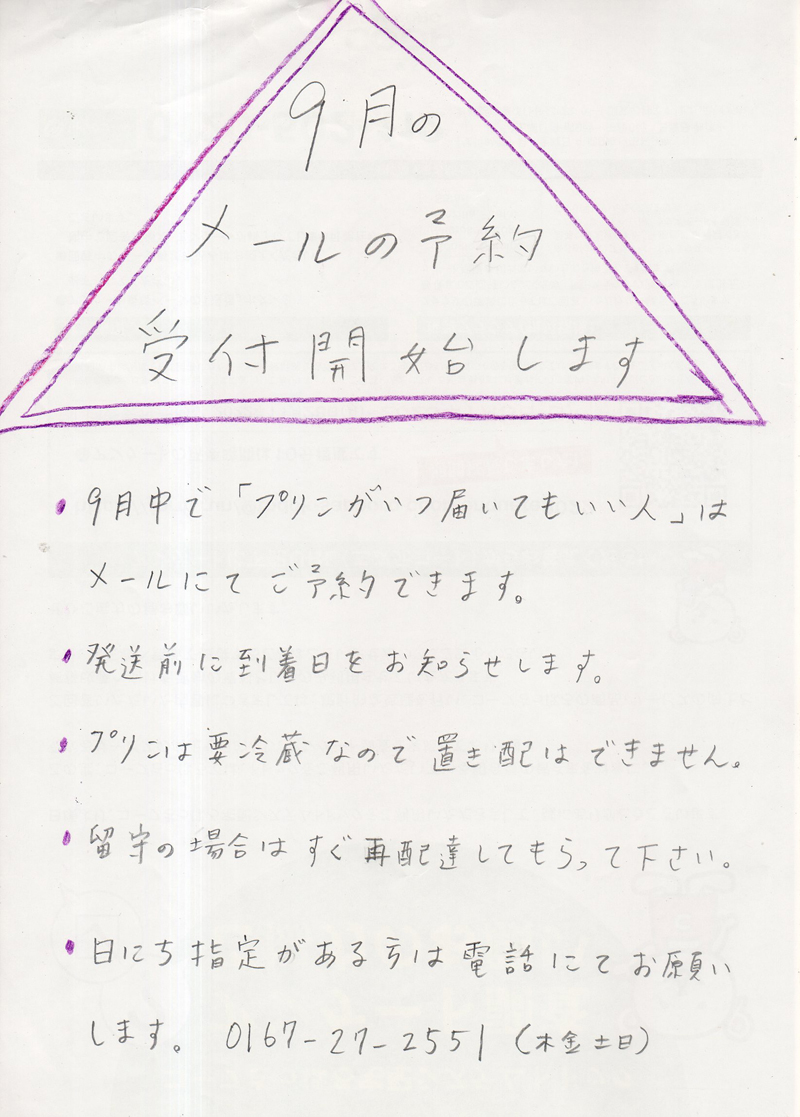 9月の
メールの予約
受付開始します
・9月中で「プリンがいつ届いてもいい人」は
メールにてご予約できます。
・発送前に到着日をお知らせします。
・プリンは要冷蔵なので置き配はできません。
・留守の場合はすぐ再配達してもらって下さい。
・日にち指定がある方は電話にてお願い
します。0167-27-2551(木金土日)